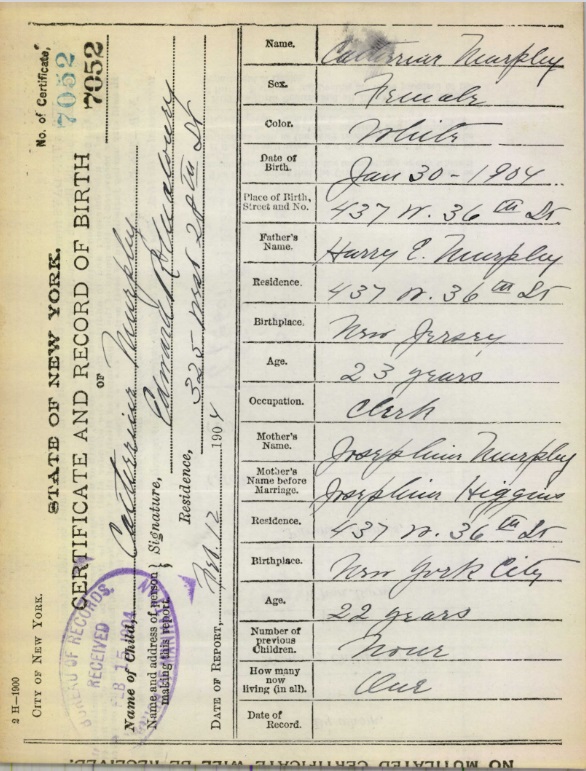 2 H-1900
CITY OF NEW YORK.
STATE OF NEW YORK.
CERTIFICATE AND RECORD OF BIRTH
OF
No. of Certificate,
7052
7052
Name of Child, Catherine Murphy
Name and address of person making this report, } Signature, Edward R.
Residence, 325 West 28th St
DATE OF REPORT, Feb. 12 1904
BUREAU OF RECORDS
RECEIVED
FEB 15 1904
Name. Catherine Murphy
Sex. Female
Color. White
Date of Birth. Jan 30 - 1904
Place of Birth, Street and No. 437 W. 36th St
Father's Name. Harry E. Murphy
Residence. 437 W. 36th St
Birthplace. New Jersey
Age. 23 years
Occupation. Clerk
Mother's Name. Josephine Murphy
Mother's Name before Marriage. Josephine Higgins
Residence. 437 W. 36th St
Birthplace. New York City
Age. 22 years
Number of previous Children. None
How many now living (in all). One
Date of Record.
NO MUTILATED CERTIFICATE WILL BE RECEIVED.